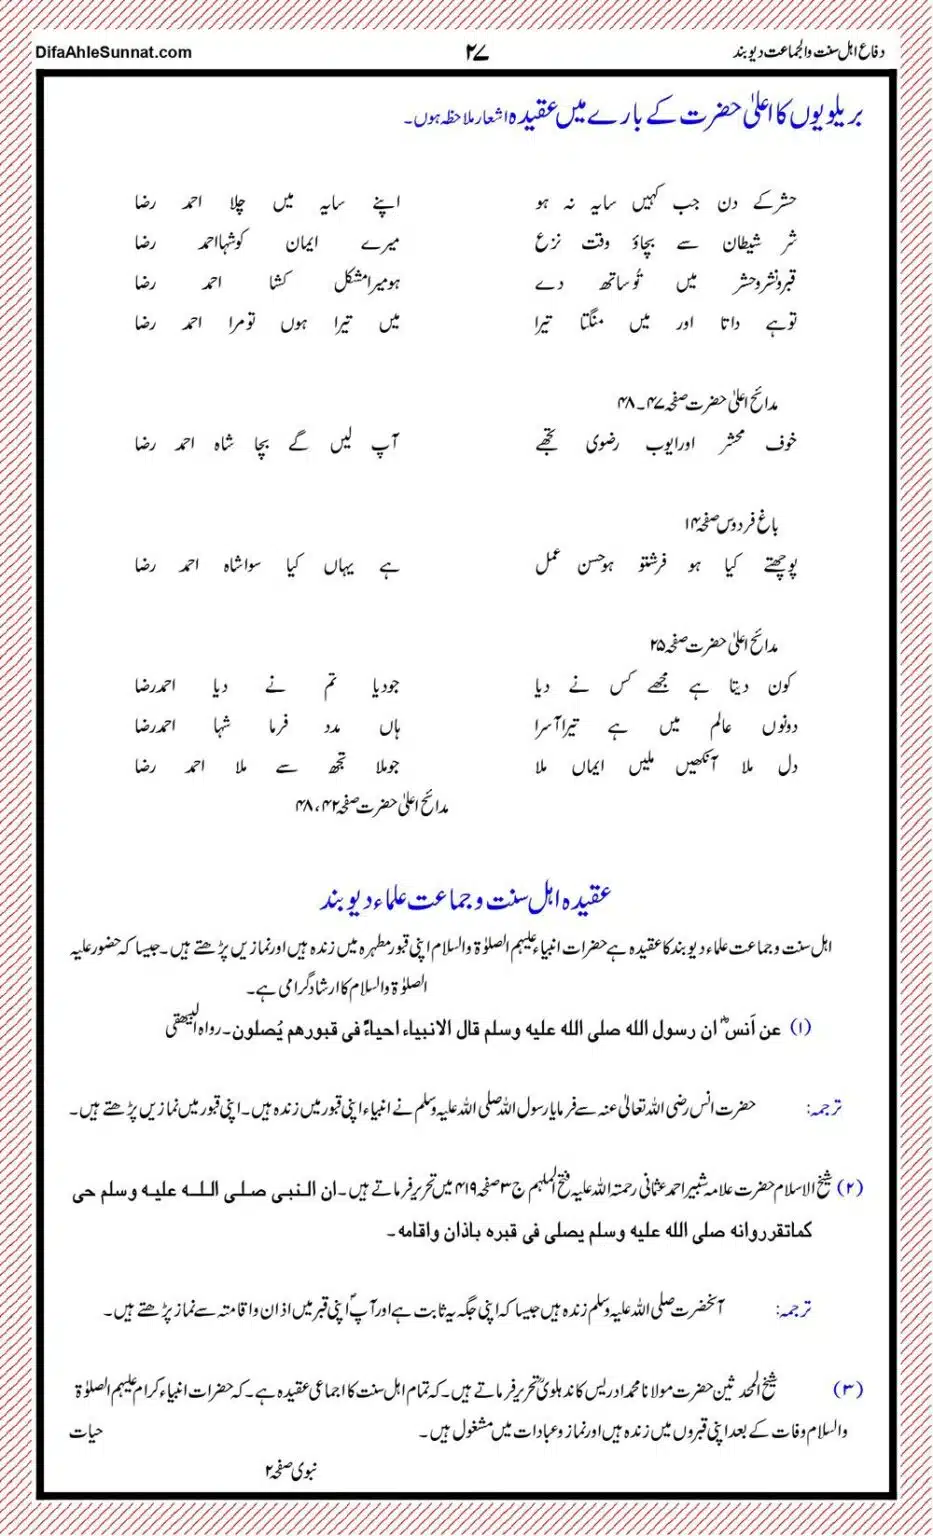 دفاع اهل سنت والجماعت دیوبند ۲۷ DifaAhleSunnat.com
بریلویوں کا اعلیٰ حضرت کے بارے میں عقیدہ اشعار ملاحظہ ہوں۔
حشر کے دن جب کہیں سایہ نہ ہو اپنے سایہ میں چلا احمد رضا
شر شیطان سے بچاؤ وقت نزع میرے ایمان کوشہا احمد رضا
قبر و نشر و حشر میں تُو ساتھ دے ہو میرا مشکل کشا احمد رضا
تو ہے داتا اور میں منگتا تیرا میں تیرا ہوں تو مرا احمد رضا
مدائح اعلیٰ حضرت صفحہ ۴۷۔۴۸
خوف محشر اور ایوب رضوی تجھے آپ لیں گے بچا شاہ احمد رضا
باغ فردوس صفحہ ۱۴
پوچھتے کیا ہو فرشتو ہو حسن عمل ہے یہاں کیا سوا شاہ احمد رضا
مدائح اعلیٰ حضرت صفحہ ۲۵
کون دیتا ہے مجھے کس نے دیا جو دیا تم نے دیا احمد رضا
دونوں عالم میں ہے تیرا آسرا ہاں مدد فرما شہا احمد رضا
دل ملا آنکھیں ملیں ایماں ملا جو ملا تجھ سے ملا احمد رضا
مدائح اعلیٰ حضرت صفحہ ۴۲، ۴۸
عقیدہ اهل سنت و جماعت علماء دیوبند
اهل سنت و جماعت علماء دیوبند کا عقیدہ ہے حضرات انبیاء علیہم الصلوٰۃ والسلام اپنی قبور مطہرہ میں زندہ ہیں اور نمازیں پڑھتے ہیں۔ جیسا کہ حضور علیہ
الصلوٰۃ والسلام کا ارشاد گرامی ہے۔
(۱) عن اَنس ؓ ان رسول الله صلى الله عليه وسلم قال الانبياء احياءٌ فى قبورهم يُصلون۔ رواہ البیھقی
ترجمہ: حضرت انس رضی اللہ تعالیٰ عنہ سے فرمایا رسول اللہ صلی اللہ علیہ وسلم نے انبیاء اپنی قبور میں زندہ ہیں۔ اپنی قبور میں نمازیں پڑھتے ہیں۔
(۲) شیخ الاسلام حضرت علامہ شبیر احمد عثمانی رحمتہ اللہ علیہ فتح الملہم ج ۳ صفحہ ۴۱۹ میں تحریر فرماتے ہیں۔ ان النبى صلى الله عليه وسلم حى
كماتقرروانه صلى الله عليه وسلم يصلى فى قبره باذان واقامه۔
ترجمہ: آنحضرت صلی اللہ علیہ وسلم زندہ ہیں جیسا کہ اپنی جگہ یہ ثابت ہے اور آپؐ اپنی قبر میں اذان و اقامتہ سے نماز پڑھتے ہیں۔
(۳) شیخ المحدثین حضرت مولانا محمد ادریس کاندھلویؒ تحریر فرماتے ہیں۔ کہ تمام اہل سنت کا اجماعی عقیدہ ہے۔ کہ حضرات انبیاء کرام علیہم الصلوٰۃ
والسلام وفات کے بعد اپنی قبروں میں زندہ ہیں اور نماز و عبادات میں مشغول ہیں۔ حیات
نبوی صفحہ ۲